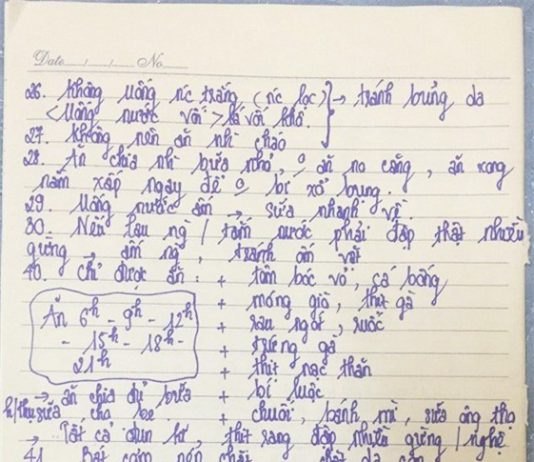 Date / / No
26. Không uống nc trắng (nc lọc) → tránh bủng da
<Uống nước vối> lá vối khô.
27. Không nên ăn nhì cháo
28. Ăn chia nhì bữa nhỏ, 0 ăn no căng, ăn xong
nằm xấp ngay để 0 bị xổ bụng.
29. Uống nước ấm → sữa nhanh về.
30. Nếu lau ng / tắm nước phải đập thật nhiều
gừng → ấm ng, tránh ốm vặt
40. Chỉ được ăn: + tôm bóc vỏ, cá bống
+ móng giò, thịt gà
Ăn 6h - 9h - 12h
- 15h - 18h -
21h
+ rau ngót, ruốc
+ trứng gà
+ thịt nạc thăn
+ bí luộc
→ ăn chia đủ bữa
sữa cho bé
+ chuối, bánh mì, sữa ông thọ
→ Tất cả đun kĩ, thịt rang đập nhiều gừng / nghệ
41. Bát cơm nóng